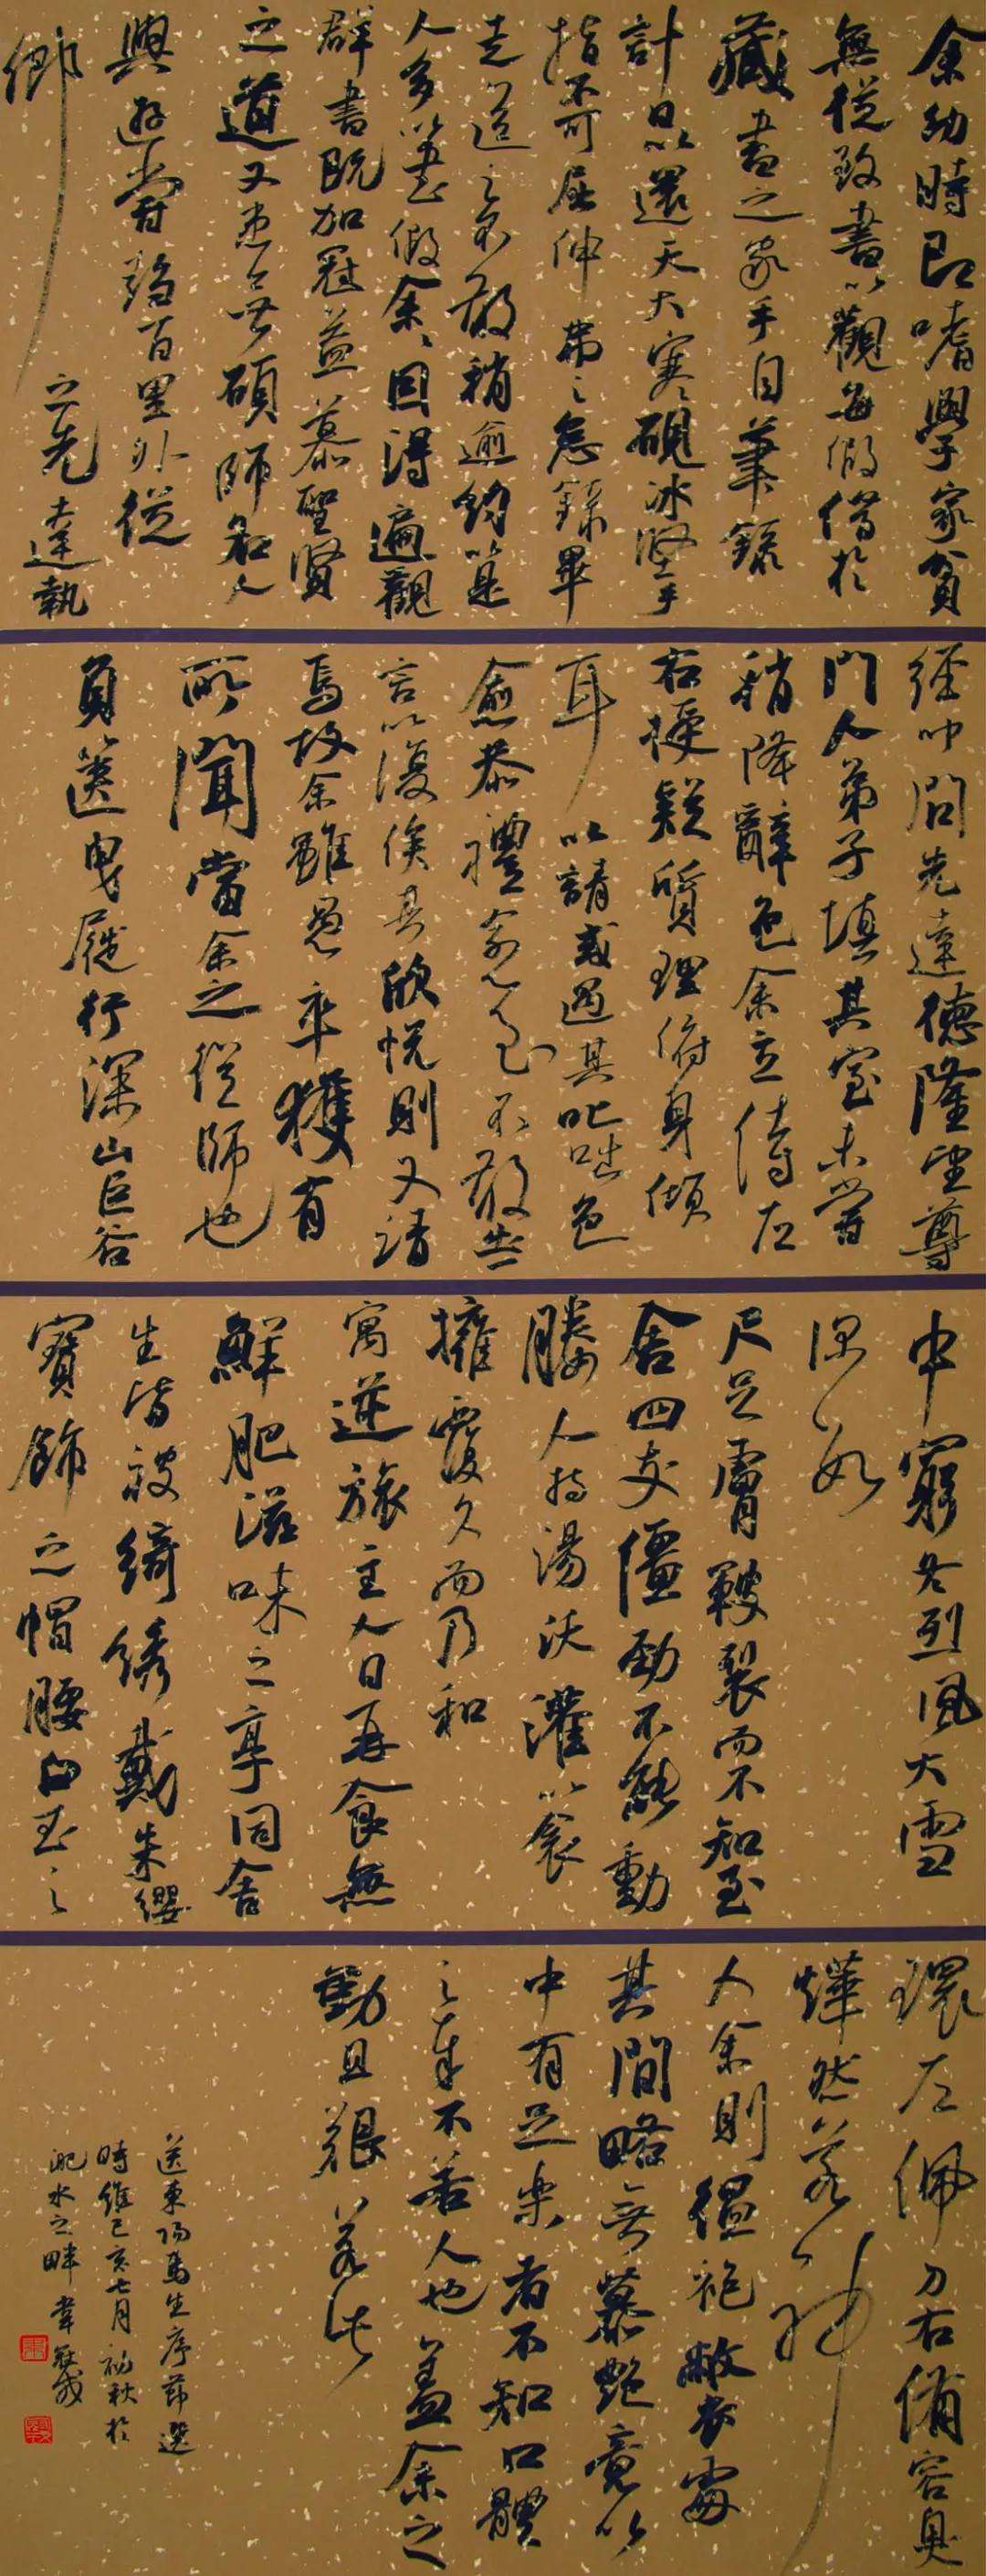 余幼時即嗜學家貧
無從致書以觀每假借於
藏書之家手自筆錄
計日以還天大寒硯冰堅手
指不可屈伸弗之怠錄畢
走送之不敢稍逾約以是
人多以書假余余因得遍觀
群書既加冠益慕聖賢
之道又患無碩師名人
與遊嘗趨百里外從
鄉之先達執
經叩問先達德隆望尊
門人弟子填其室未嘗
稍降辭色余立侍左
右援疑質理俯身傾
耳以請或遇其叱咄色
愈恭禮愈至不敢出
言以復俟其欣悅則又請
焉故余雖愚卒獲有
所聞當余之從師也
負篋曳屣行深山巨谷
中窮冬烈風大雪
深數
尺足膚皸裂而不知至
舍四支僵勁不能動
媵人持湯沃灌以衾
擁覆久而乃和
寓逆旅主人日再食無
鮮肥滋味之享同舍
生皆被綺绣戴朱纓
寶飾之帽腰白玉之
環左佩刀右備容臭
燁然若神
人余則縕袍敝衣處
其間略無慕艷意以
中有足樂者不知口體
之奉不若人也蓋余之
勤且艱若此
送東陽馬生序節選
時維己亥七月初秋於
淝水之畔 韋